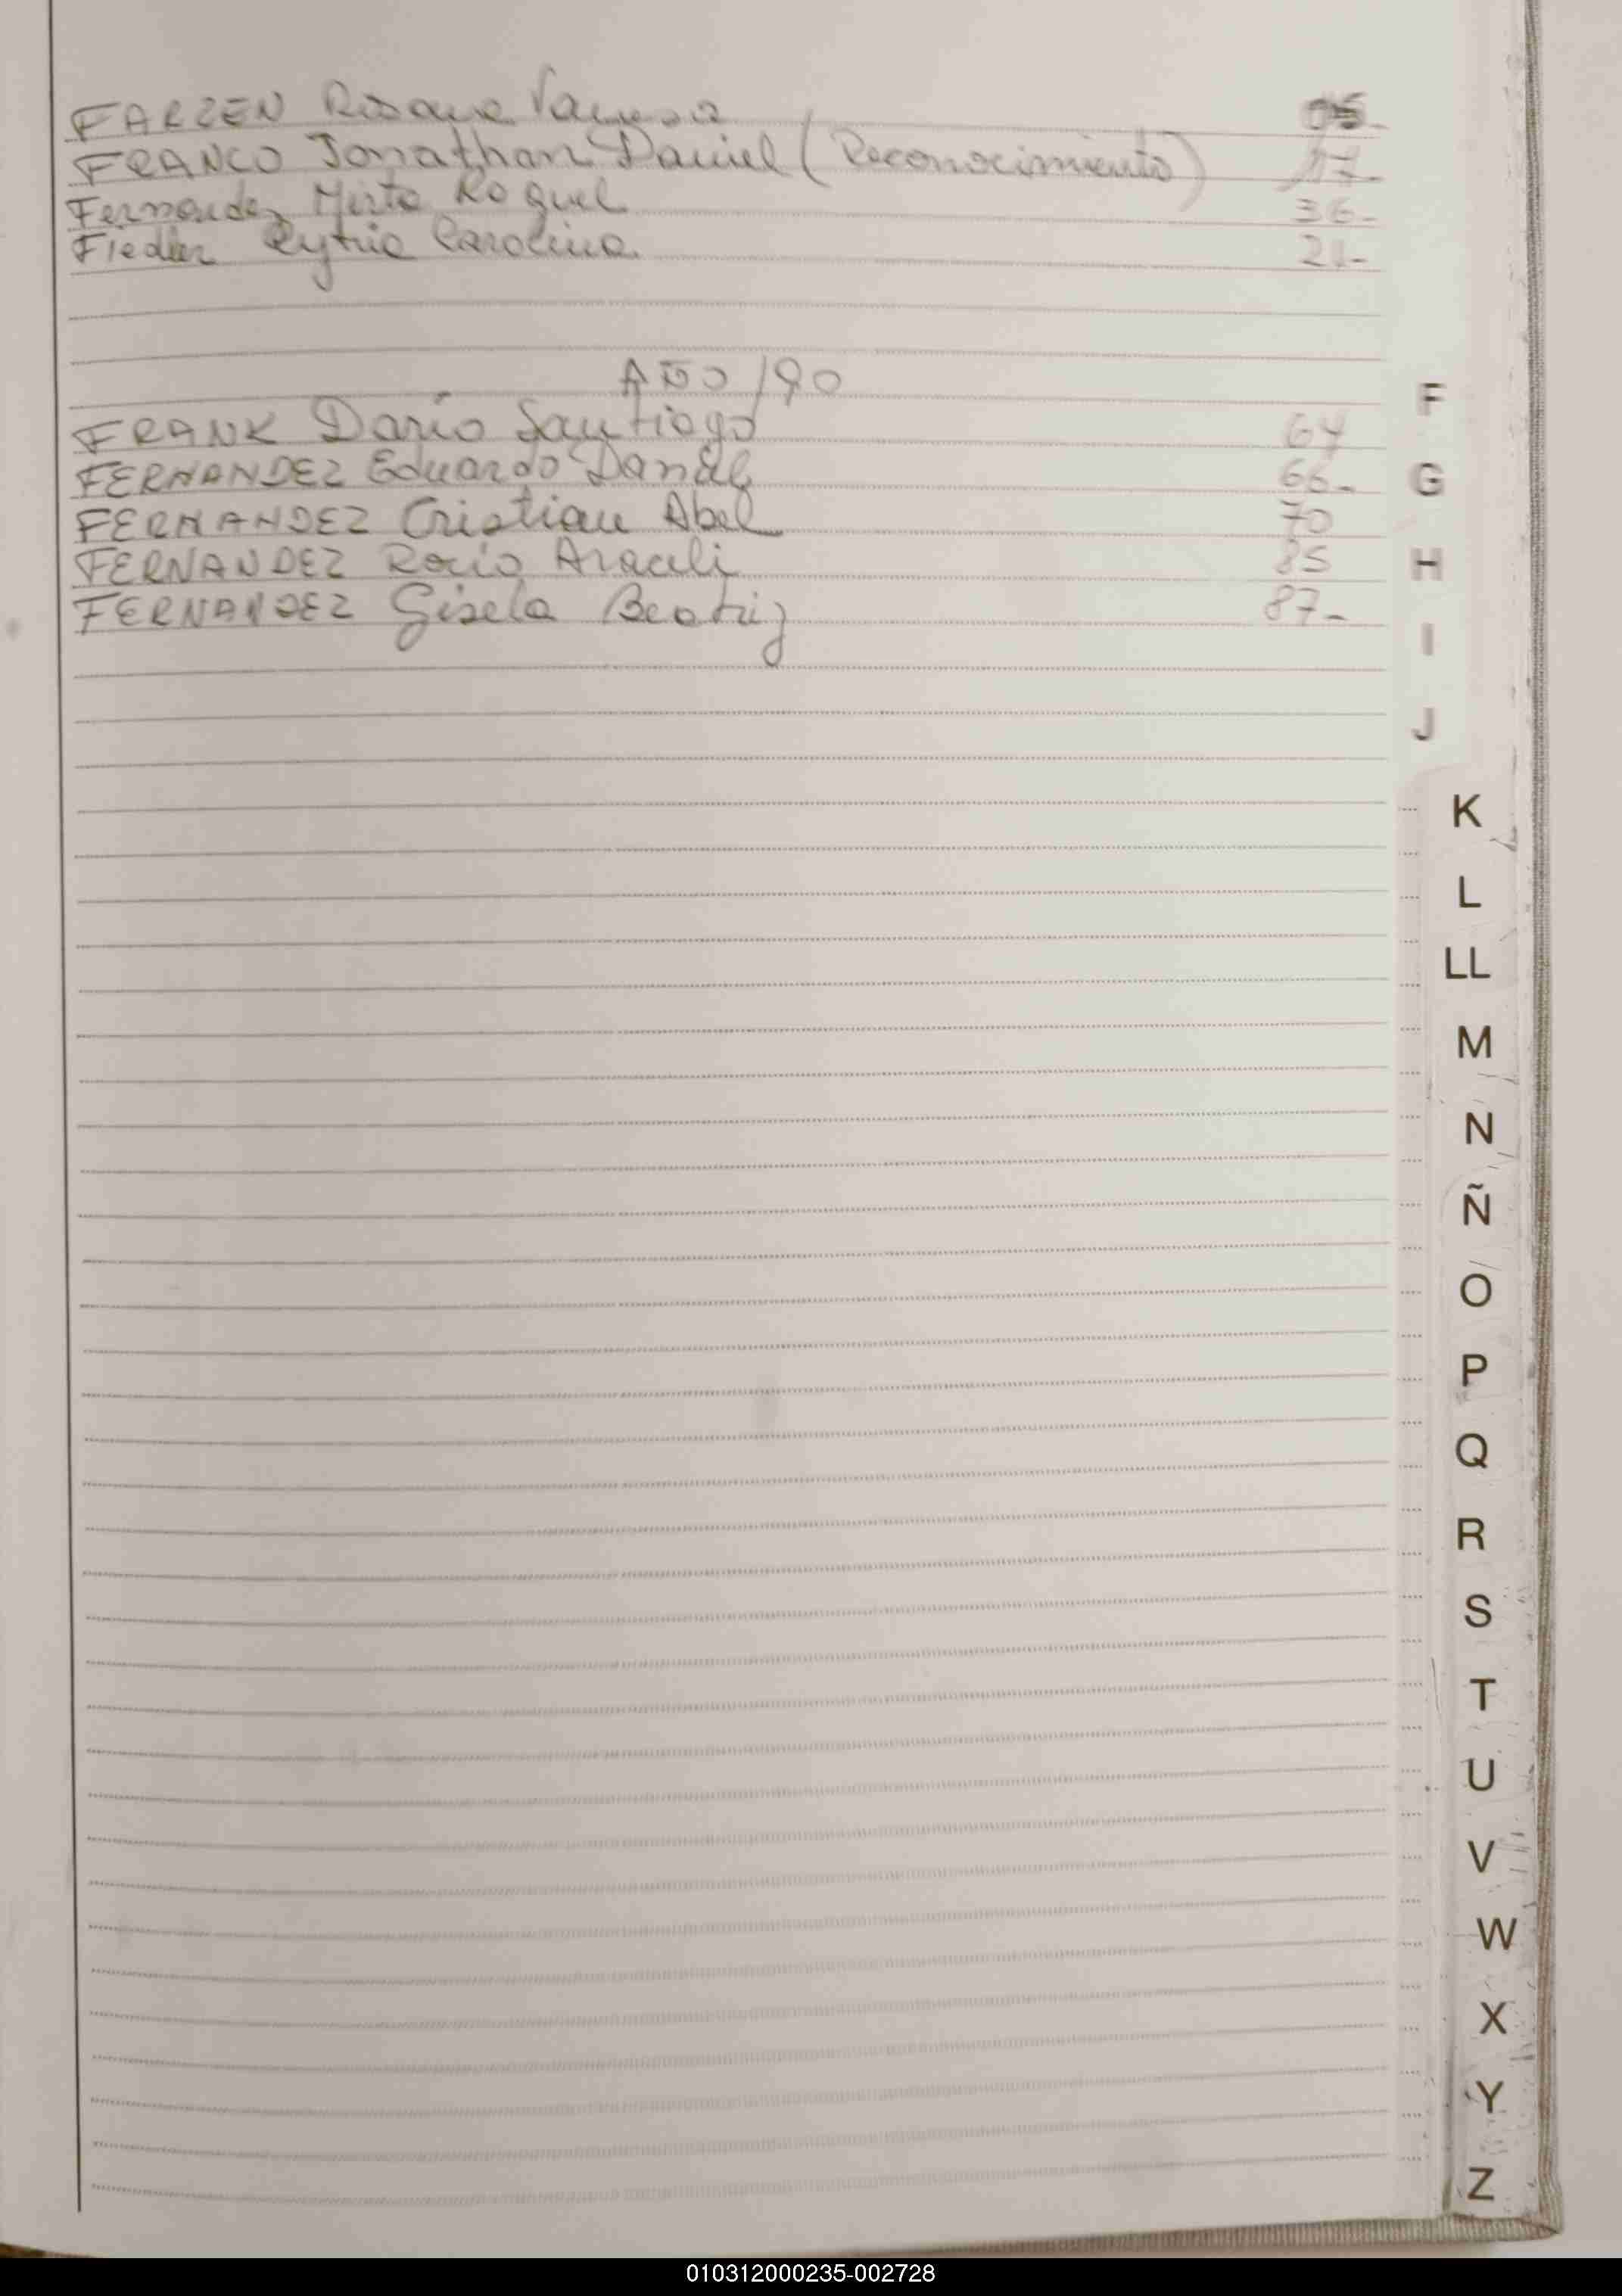 FARZEN Rosana Vanesa 05-
FRANCO Jonathan Daniel (Reconocimiento) 17-
Fernandez Mirta Raquel 36-
Fiedler Carolina 21-
AÑO/90
FRANK Darío Santiago 64
FERNANDEZ Eduardo Daniel 66-
FERNANDEZ Cristian Abel 70
FERNANDEZ Rocío Araceli 85
FERNANDEZ Gisela Beatriz 87-
F
G
H
I
J
K
L
LL
M
N
Ñ
O
P
Q
R
S
T
U
V
W
X
Y
Z
010312000235-002728